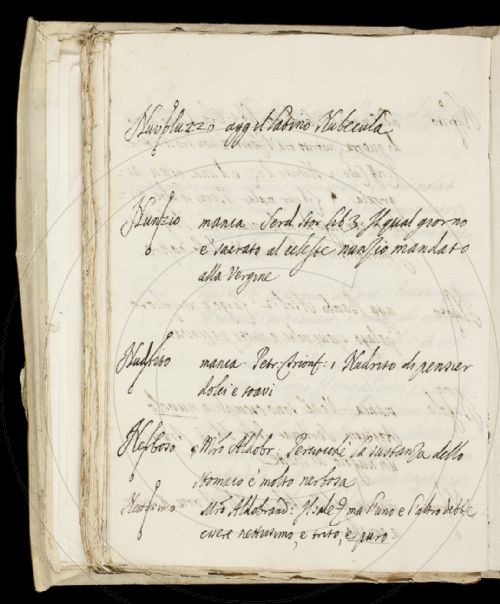 Nuvoluzzo agg il latino Nubecula
Nunzio manca. Serd. stor. lib. 3. Il qual giorno
è sacrato al celeste nunzio mandato
alla Vergine
Nudrito manca. Petr. Trionf. 1 Nudrito di pensier
dolci e soavi
Nerboso Mro Aldobr. Perciocchè la sustanza dello
stomaco è molto nerbosa
Mro Aldobrand: ma l'uno e l'altro debbe
essere nettissimo, e trito, e puro